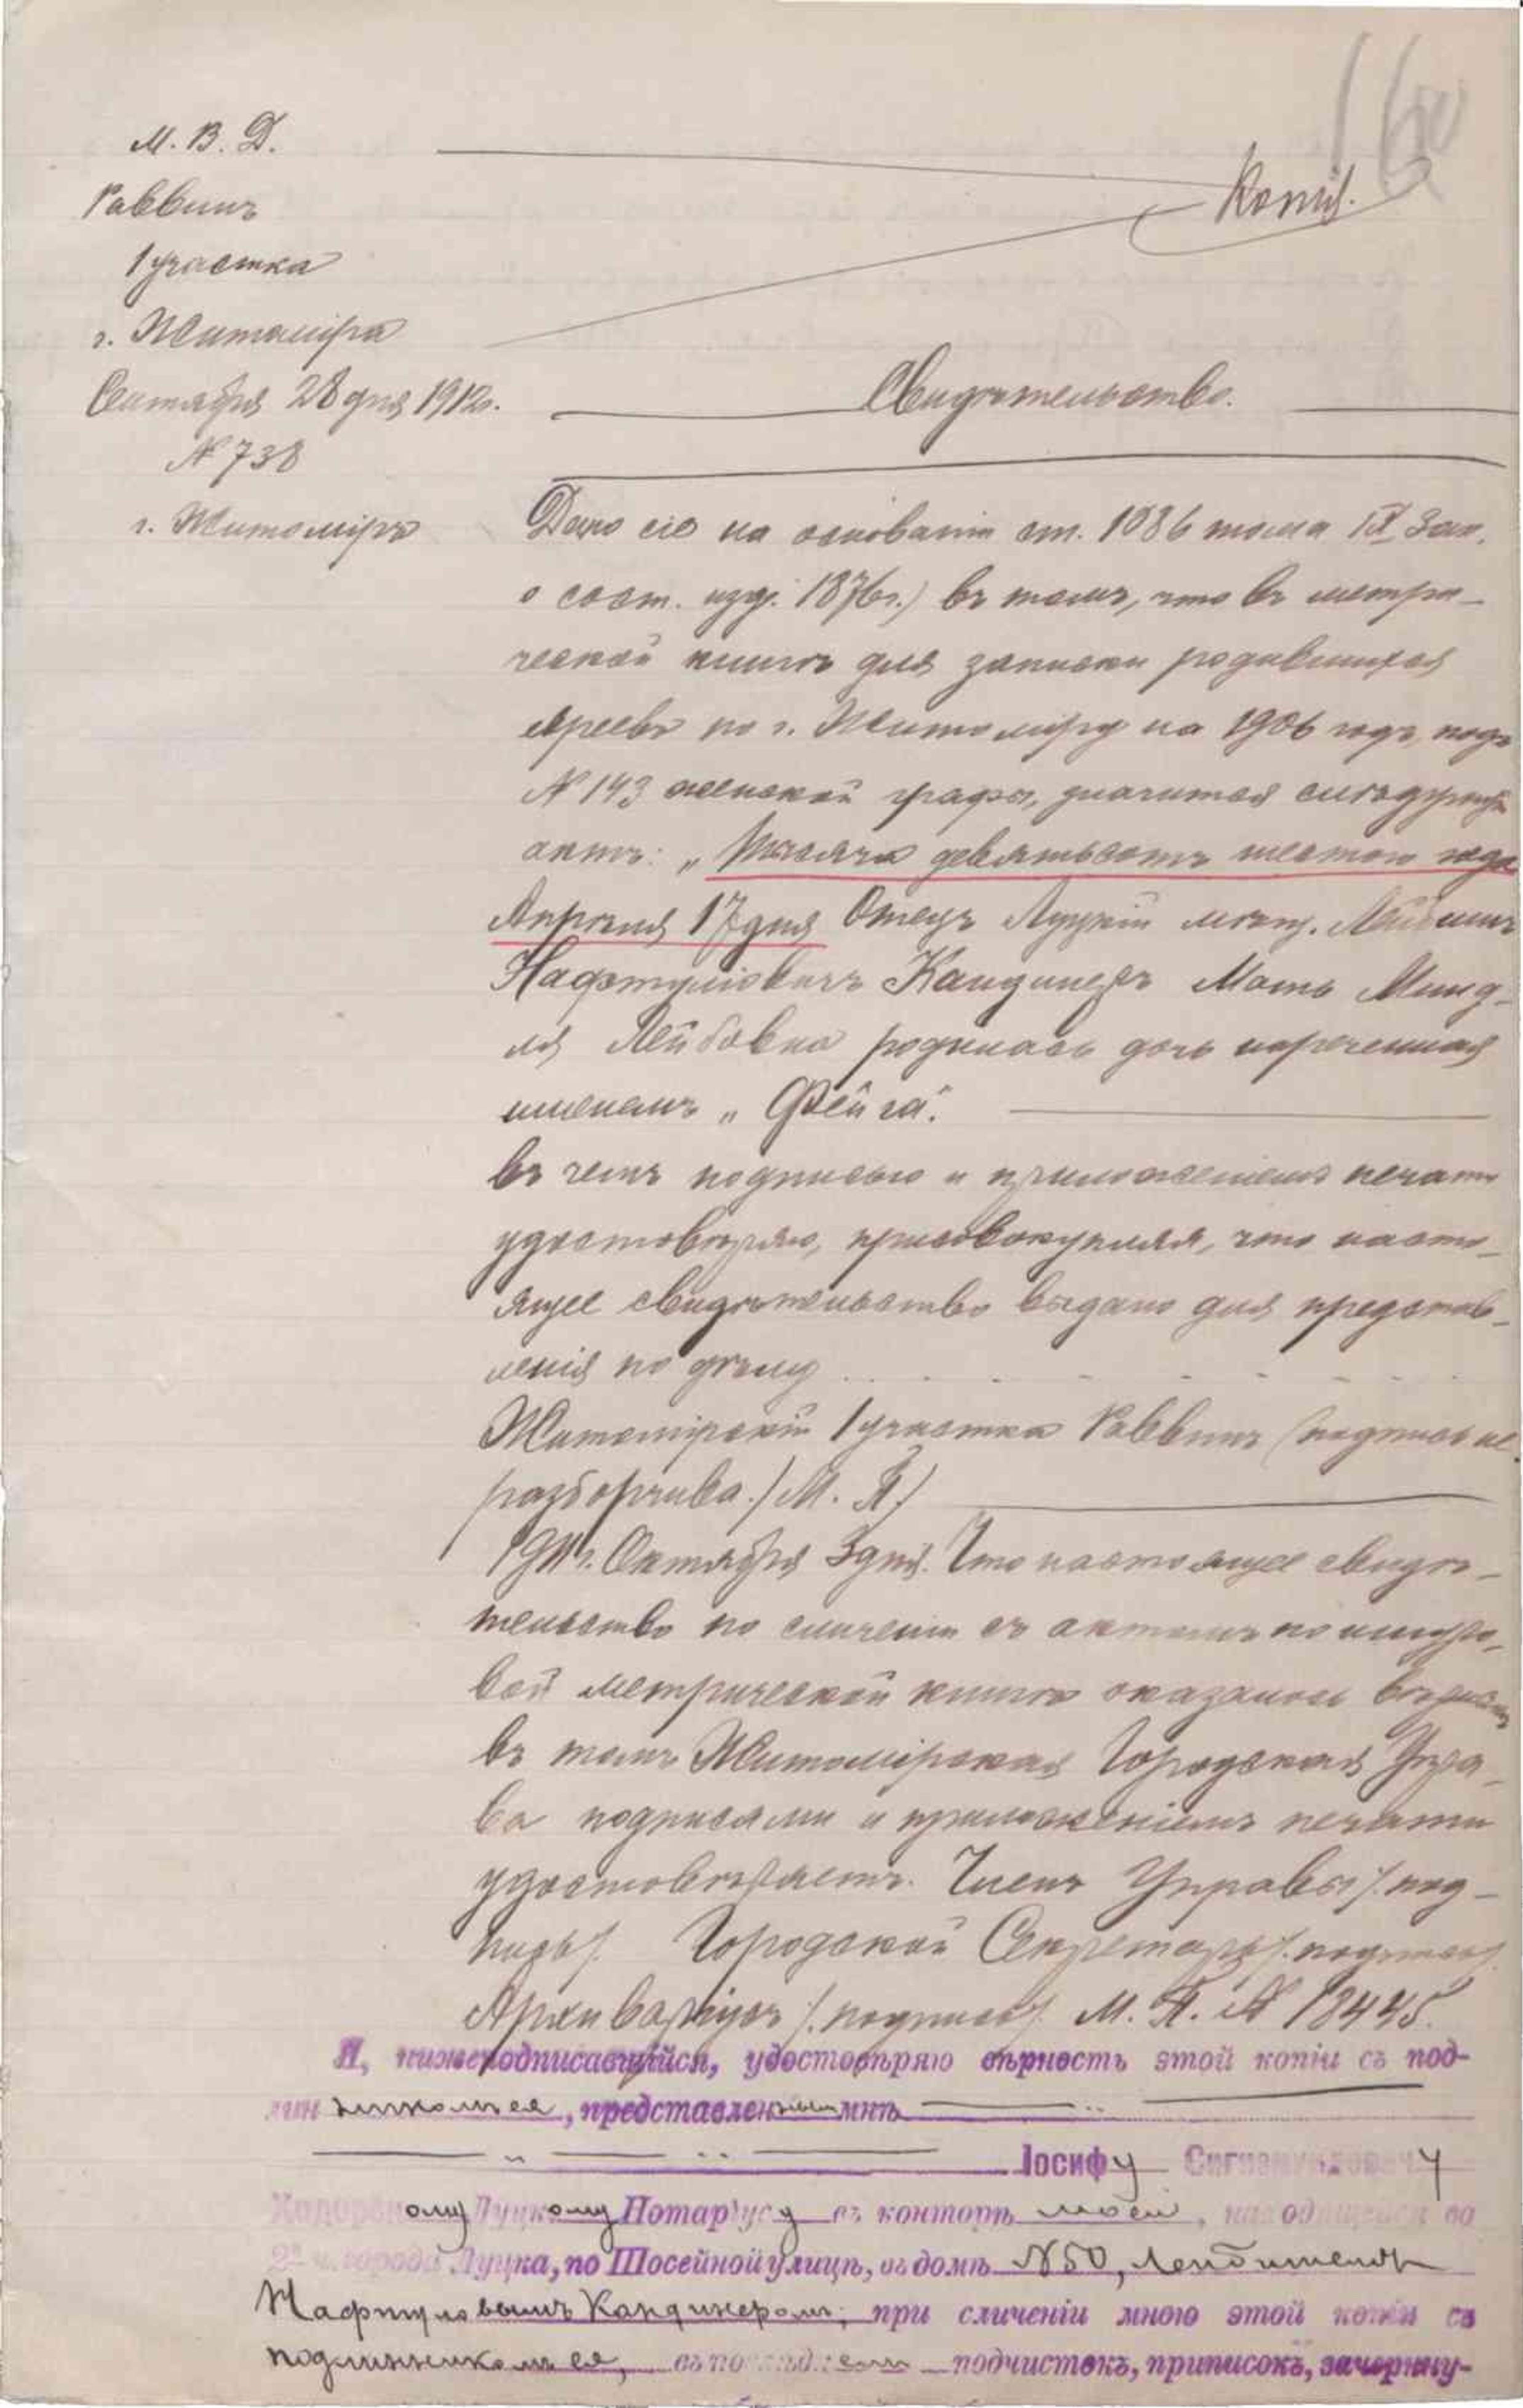 М. В. Д.
Раввинъ
1 участка
г. Житомира
Сентября 28 дня 1912г.
№ 738
г. Житомiръ
Копiя.
Свидѣтельство.
Дано сiе на основанiи ст. 1086 тома IX Зак.
о сост. изд. 1876г.) въ томъ, что въ метри-
ческой книгѣ для записки родившихся
евреевъ по г. Житомiру на 1906 годъ, подъ
№ 143 женской графы, значится слѣдующiй
актъ: „Тысяча девятьсотъ шестого года
Апрѣля 17 дня Отецъ Луцкiй мѣщ.
Нафтулiовичъ Кандинеръ Мать Минд-
ля Лейбовна родилась дочь нареченная
именемъ „Фейга".
въ чемъ подписью и приложенiемъ печати
удостовѣряю, присовокупляя, что насто-
ящее свидѣтельство выдано для представ-
ленiя по дѣлу
Житомiрскiй 1 участка Раввинъ (подпись не
разборчива./ М. П./
Октября 3 дня. Что настоящее свидѣ-
тельство по сличенiи съ актомъ по шнуро-
вой метрической книгѣ оказалось вѣрнымъ
въ томъ Житомiрская Городская Упра-
ва подписями и приложенiемъ печати
удостовѣряетъ. Членъ Управы /.под-
пись/. Городской Секретарь /.подпись/.
Архиварiусъ /.подпись/. М. П. № 18445.
Я, нижеподписавшiйся, удостовѣряю вѣрность этой копiи съ под-
линникомъ ея, представленнымъ мнѣ
Iосифу Сигизмундовичу
ому Луцкому Нотарiусу въ конторѣ моей, находящейся во
2й ч. города Луцка, по Шосейной улицѣ, въ домѣ № 50,
Нафтуловымъ Кандинеромъ; при сличенiи мною этой копiи съ
подлинникомъ ея, въ послѣднемъ подчистокъ, приписокъ, зачеркну-